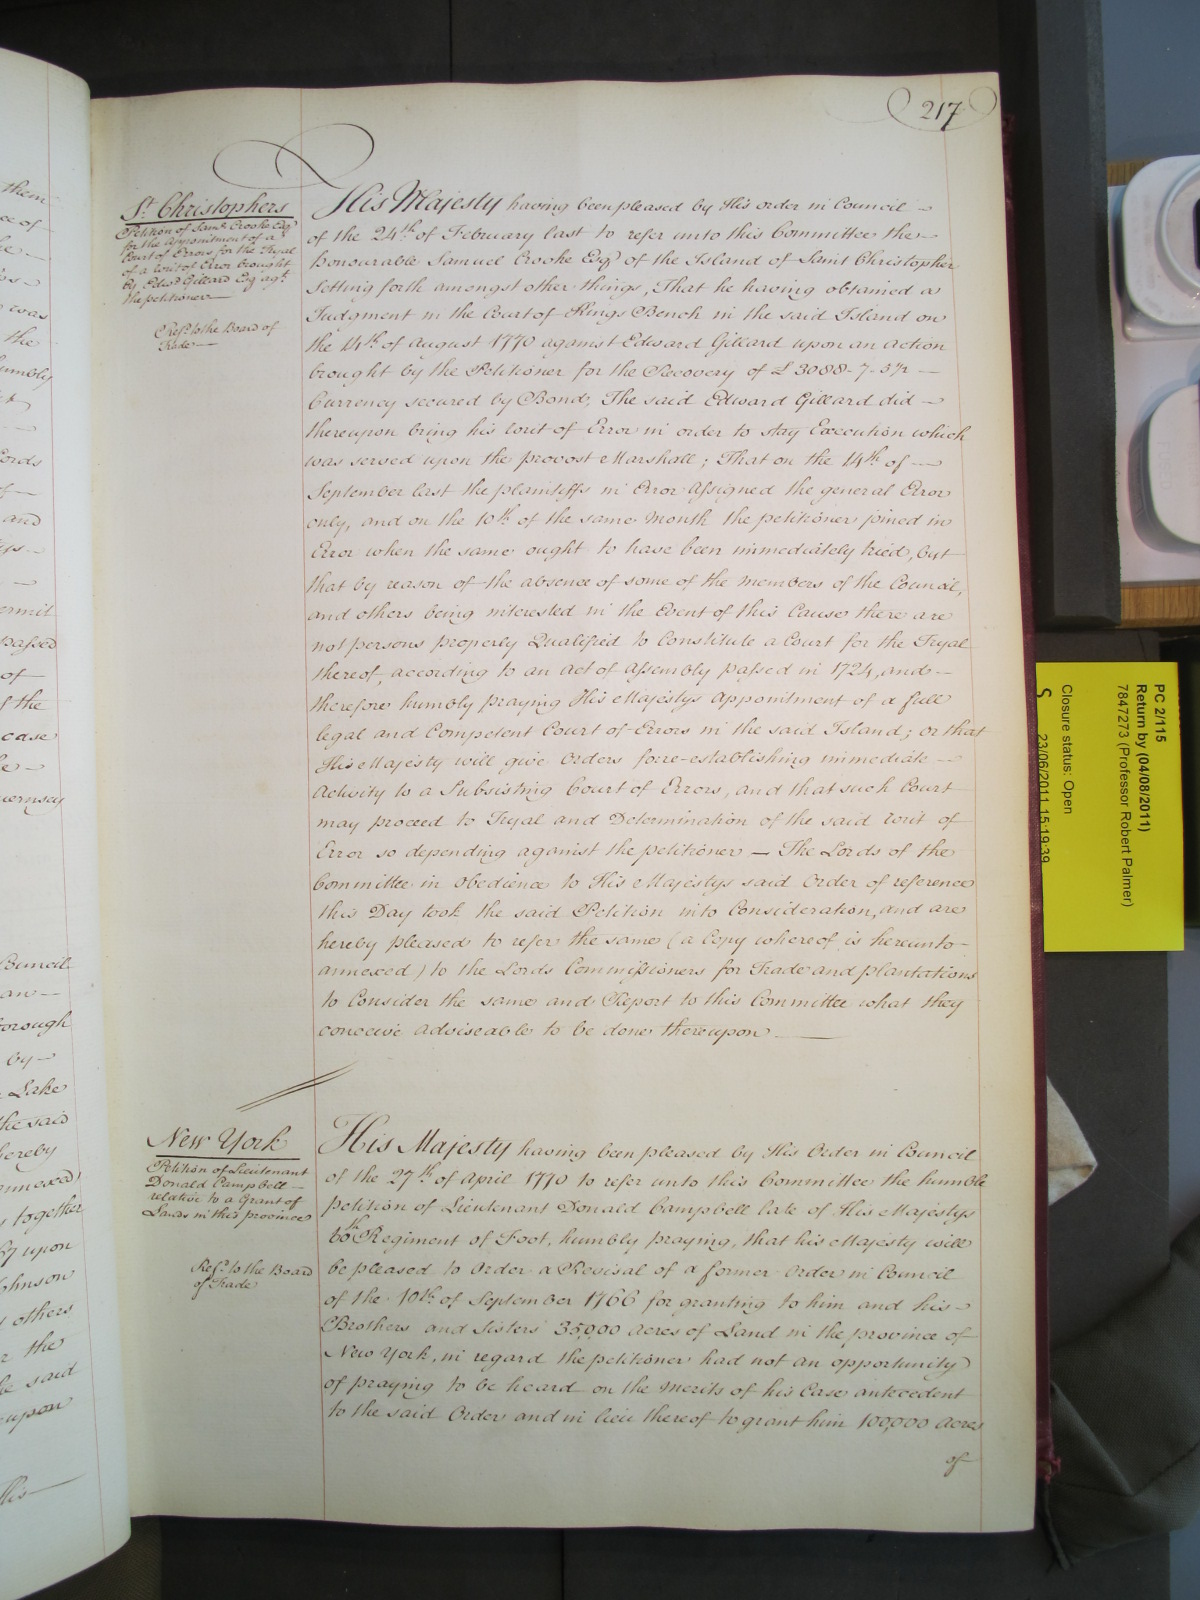 217
St. Christophers
Petition of Saml. Crooke Esqr.
for the Appointment of a
Court of Errors for the Tryal
of a Writ of Error brought
by Edwd. Gillard Esqr. agst.
the petitioner —
Refd. to the Board of
Trade —
His Majesty having been pleased by His order in Council —
of the 24th of February last to refer unto this Committee the —
honourable Samuel Crooke Esqr. of the Island of Saint Christopher
Setting forth amongst other things, That he having obtained a
Judgment in the Court of Kings Bench in the said Island on
the 14th of August 1770 against Edward Gillard upon an action
brought by the Petitioner for the Recovery of £ 3088-7-5½ —
Currency secured by Bond, The said Edward Gillard did —
thereupon bring his Writ of Error in order to stay Execution which
was served upon the provost Marshall; That on the 14th of —
September last the plaintiffs in Error Assigned the general Error
only, and on the 10th of the same Month the petitioner joined in
Error when the same ought to have been immediately tried, but
that by reason of the absence of some of the Members of the Council,
and others being interested in the Event of this Cause there are
not persons properly Qualified to Constitute a Court for the Tryal
thereof, according to an Act of Assembly passed in 1724, and —
therefore humbly praying His Majestys Appointment of a full
legal and Competent Court of Errors in the said Island; or that
His Majesty will give Orders for re-establishing immediate —
Activity to a Subsisting Court of Errors, and that such Court
may proceed to Tryal and Determination of the said Writ of
Error so depending against the petitioner — The Lords of the
Committee in obedience to His Majestys said Order of reference
this Day took the said Petition into Consideration, and are
hereby pleased to refer the same (a Copy whereof is hereunto
annexed) to the Lords Commissioners for Trade and plantations
to Consider the same and Report to this Committee what they
conceive adviseable to be done thereupon —
New York
Petition of Lieutenant
Donald Campbell —
relative to a Grant of
Lands in this province
Refd. to the Board
of Trade
His Majesty having been pleased by His Order in Council
of the 27th of April 1770 to refer unto this Committee the humble
petition of Lieutenant Donald Campbell late of His Majestys
60th Regiment of Foot, humbly praying, that his Majesty will
be pleased to Order a Revisal of a former Order in Council
of the 10th of September 1766 for granting to him and his —
Brothers and Sisters 35,000 acres of Land in the province of
New York, in regard the petitioner had not an opportunity
of praying to be heard on the Merits of his Case antecedent
to the said Order and in lieu thereof to grant him 100,000 acres
of
PC 2/115
Return by (04/08/2011)
7847273 (Professor Robert Palmer)
Closure status: Open
S
23/06/2011 15:19:39
them
was
the
Lords
and
of
passed
of
case
Council
by —
Lake
the said
hereby
annexed)
together
upon
Johnson
others
the
said
upon